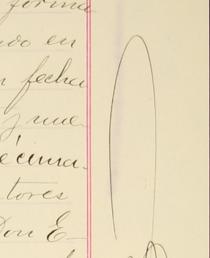 forma
do en
fecha
y nue
écima.
tores
Don E-